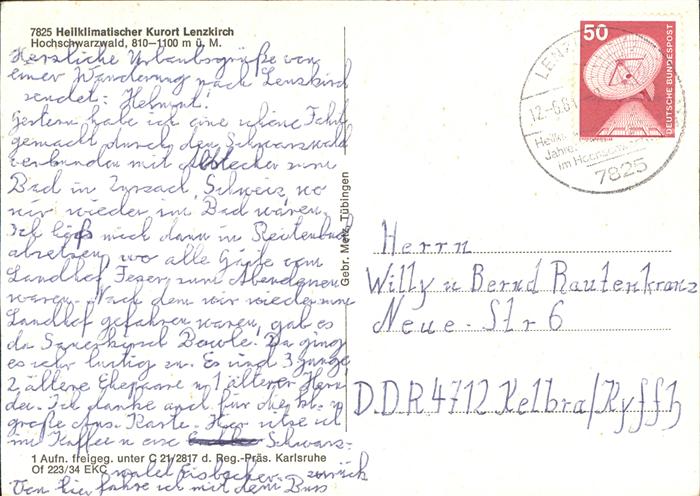 7825 Heilklimatischer Kurort Lenzkirch
Hochschwarzwald, 810–1100 m ü. M.
Herzliche Urlaubsgrüße von
einer Wanderung nach Lenzkirch
sendet: Helmut!
Gestern habe ich eine schöne Fahrt
gemacht durch den Schwarzwald
verbunden mit Abstecher zum
Bad in Zurzach, Schweiz, wo
wir wieder im Bad waren.
Ich ließ mich dann in
absetzen, wo alle Gäste vom
Landhof zum Abendessen
waren. Nach dem wir wieder zum
Landhof gefahren waren, gab es
da Sauerkirsch Bowle. Da ging
es sehr lustig zu. Es sind 3 junge
2 ältere Ehepaare u 1 älterer Herr
da. Ich danke auch für die
große Ans. Karte. Hier sitze ich
im Kaffee u esse Schwarz-
wälder Eisbecher. zurück
Von hier fahre ich mit dem Bus
1 Aufn. freigeg. unter C 21/2817 d. Reg.-Präs. Karlsruhe
Of 223/34 EKC
Gebr. Metz, Tübingen
50
DEUTSCHE BUNDESPOST
LENZ
12.-6.8
Heilkl
Jahre
im Hochschw
7825
Herrn
Willy u Bernd Rautenkranz
Neue-Str 6
DDR 4712 Kelbra/Kyffh